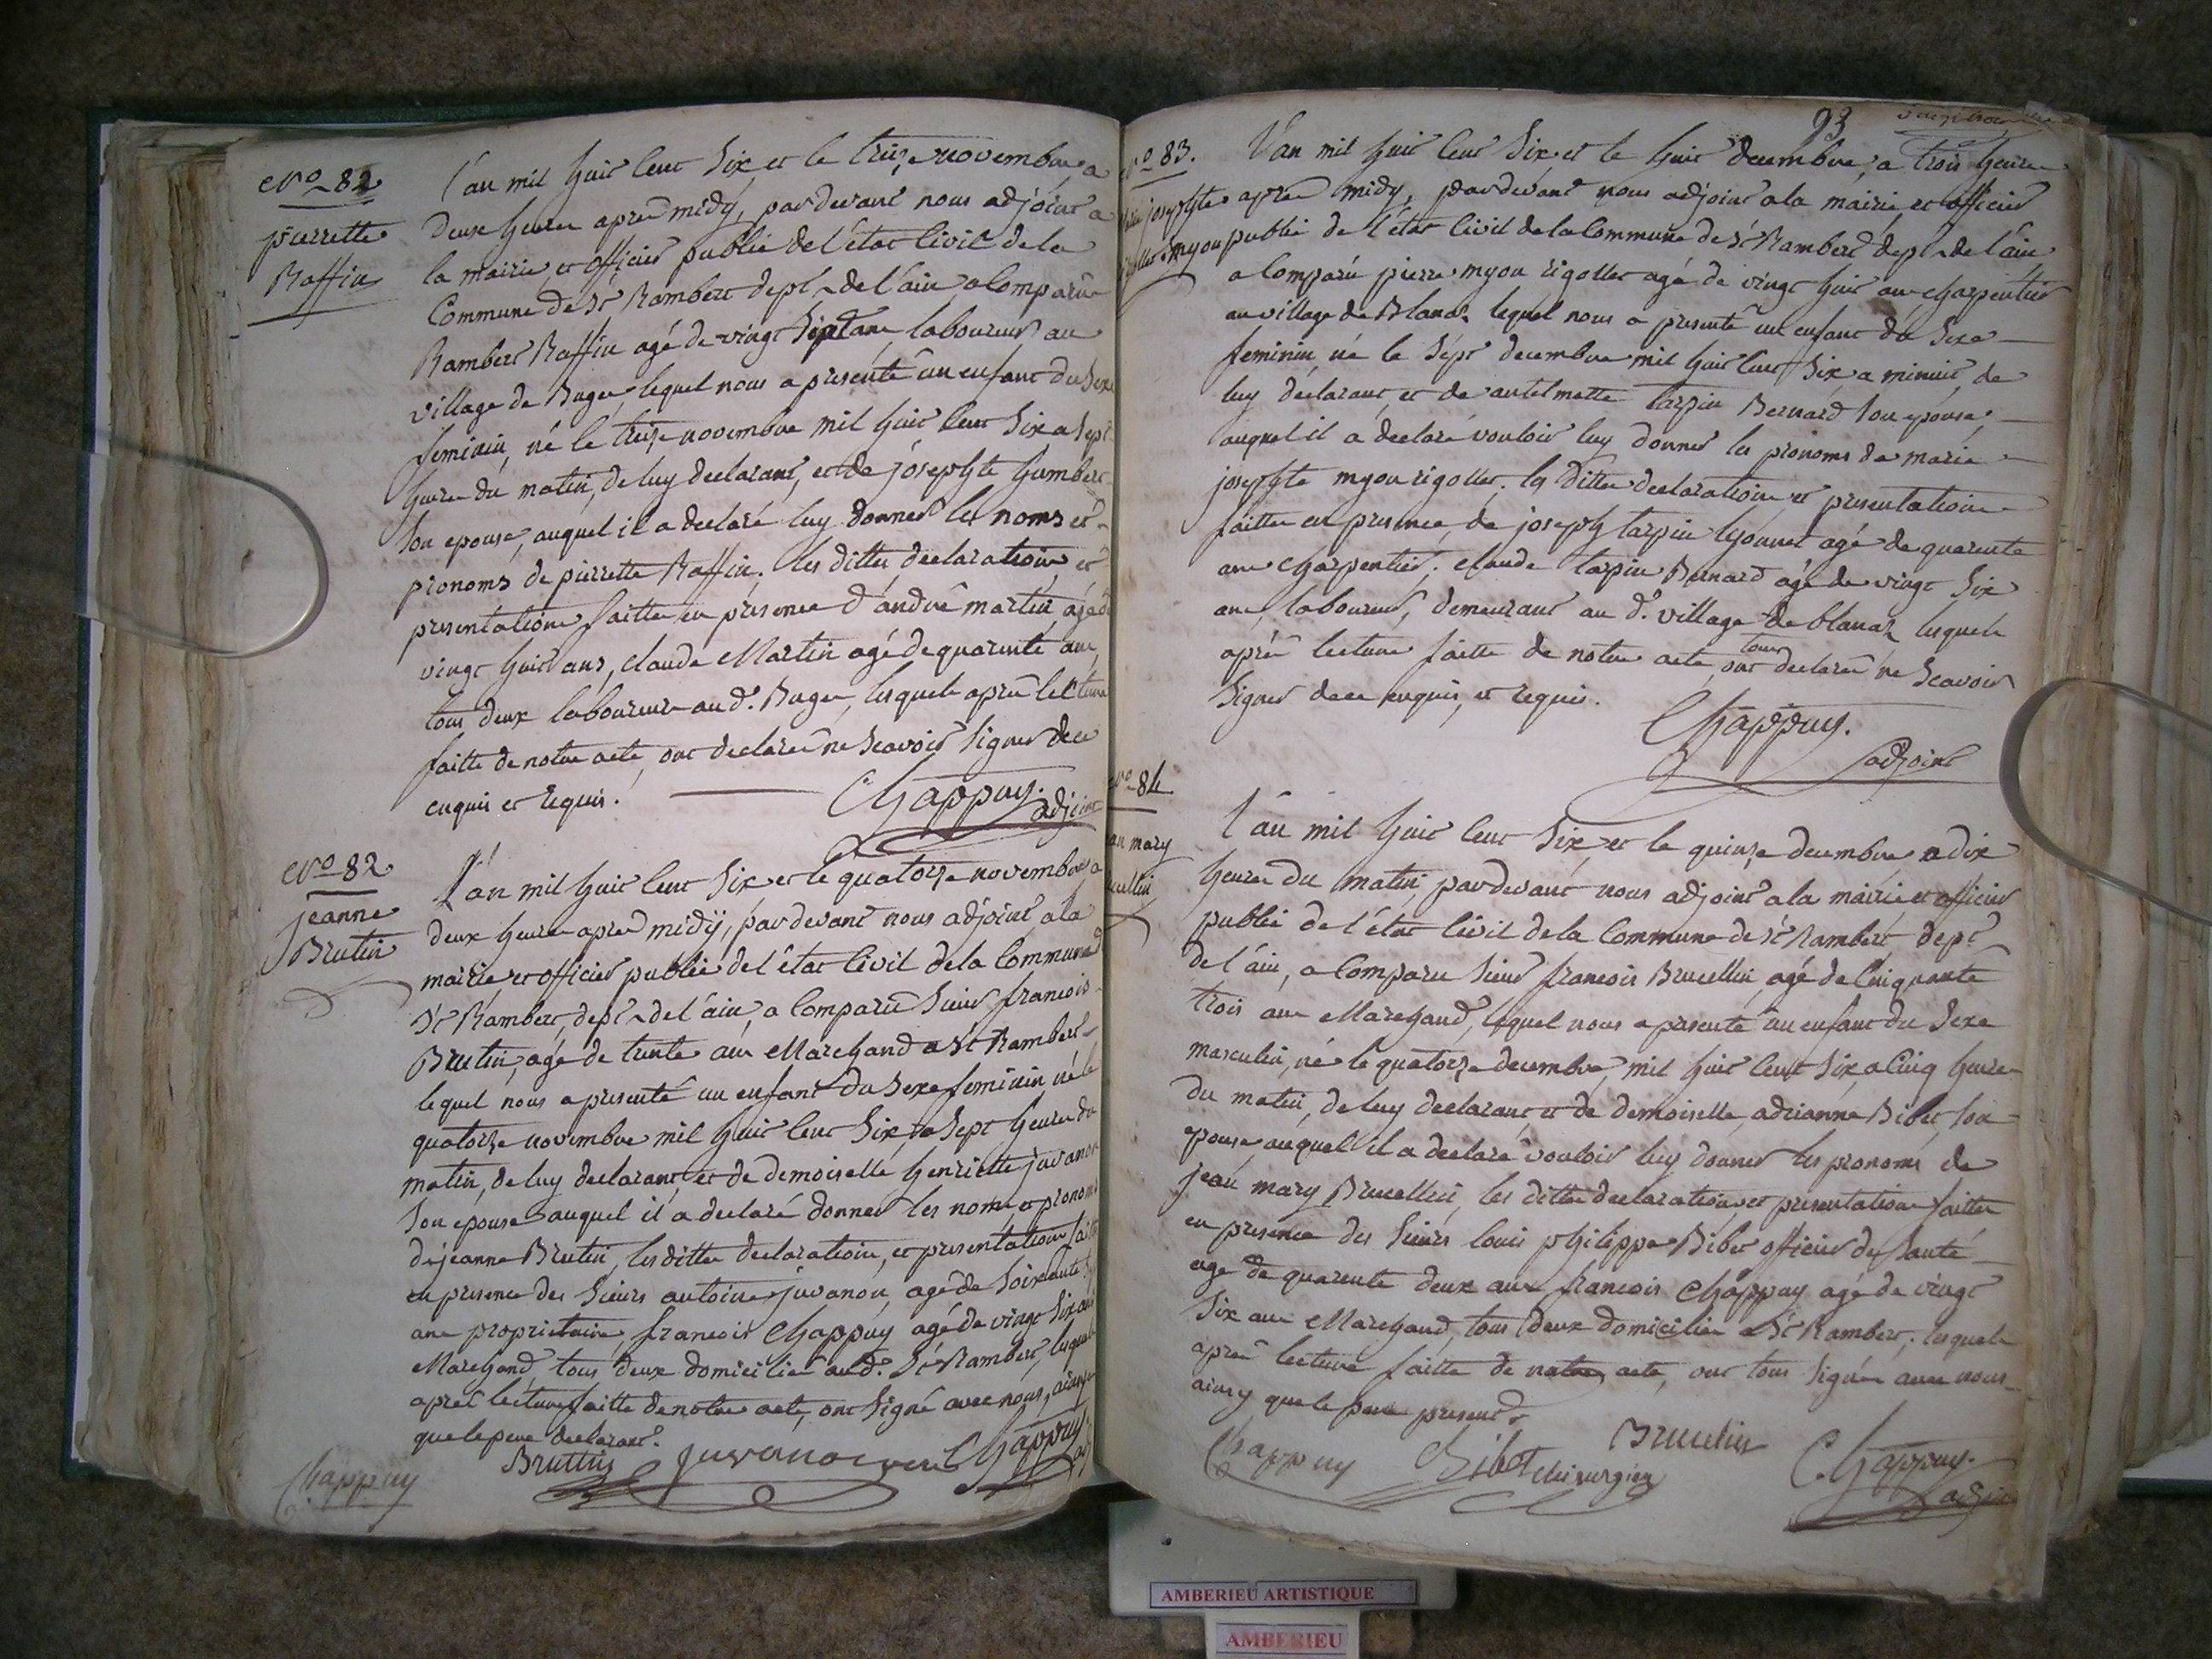 N.o 82
pierrette
Raffin
l'an mil huit cent six et le treize novembre, a
deux heures apres midy, pardevant nous adjoint a
la mairie et officier public de l'état civil de la
Commune de St Rambert dept de l'ain, a comparu
Rambert Raffin agé de vingt sept ans, laboureur au
village de Buges, lequel nous a presenté un enfant du sexe
feminin, né le treize novembre mil huit cent six a sept
heures du matin, de luy declarant, et de josephte humbert
son epouse, auquel il a declaré luy donner les noms et
pronoms de pierrette Raffin. les dittes declaration et
presentation faittes en presence d'andré martin, agé de
vingt huit ans, claude Martin agé de quarente ans,
tous deux laboureurs aud. Buges, lesquels après lecture
faitte de notre acte, ont declaré ne scavoir signer de ce
enquis et requis.
Chappuy.
adjoint
N.o 82
jeanne
Brutin
L'an mil huit cent six et le quatorze novembre a
deux heures apres midy, pardevant nous adjoint a la
mairie et officier public de l'état civil de la Commune d
St Rambert, dept de l'ain, a comparu sieur francois
Brutin, agé de trente ans Marchand a St Rambert
lequel nous a presenté un enfant du sexe feminin né le
quatorze novembre mil huit cent six, a sept heures du
matin, de luy declarant, et de demoiselle henriette juvanon
son epouse auquel il a declaré donner les noms et pronoms
de jeanne Brutin, les dittes declaration, et presentation faittes
en presence des sieurs antoine juvanon, agé de soixente
ans proprietaire, francois Chappuy agé de vingt six ans
Marchand, tous deux domiciliés aud. St Rambert, lesquels
après lecture faitte de notre acte, ont signé avec nous, ainsy
que le pere declarant.
Chappuy Bruttin juvanon Chappuy.
93
No 83.
josephte
myon
L'an mil huit cent six et le huit decembre, a trois heures
apres midy, pardevant nous adjoint a la mairie et officier
public de l'état civil de la Commune de St Rambert dept de l'ain
a comparu pierre myon rigollet agé de vingt huit ans charpentier
au village de Blanaz lequel nous a presenté un enfant du sexe
feminin, né le sept decembre mil huit cent six a minuit, de
luy declarant, et de antelmette tarpin Bernard son epouse,
auquel il a declaré vouloir luy donner les pronoms de marie
josephte myon rigollet. les dittes declaration et presentation
faittes en presence, de joseph tarpin lyonnet agé de quarente
ans charpentier, claude tarpin Bernard agé de vingt six
ans, laboureur, demeurant au d. village de blanaz lesquels
après lecture faitte de notre acte, tous ont declaré ne scavoir
signer de ce enquis, et requis.
Chappuy.
adjoint
No 84
mary
L'an mil huit cent six et le quinze decembre a dix
heures du matin, pardevant nous adjoint a la mairie et officier
public de l'état civil de la Commune de St Rambert dept
de l'ain, a comparu sieur francois Brucellin, agé de cinquante
trois ans Marchand, lequel nous a presenté un enfant du sexe
masculin, né le quatorze decembre, mil huit cent six, a cinq heures
du matin, de luy declarant, et de demoiselle adrianne Bibet, son
epouse auquel il a declaré vouloir luy donner les pronoms de
jean mary Brucellin, les dittes declaration et presentation faittes
en presence des sieurs louis philippe Bibet officier de santé
agé de quarente deux ans francois Chappuy agé de vingt
six ans Marchand, tous deux domiciliés a St Rambert, lesquels
après lecture faitte de notre acte, ont tous signés avec nous
ainsy que le pere present.
Chappuy Bibet chirurgien Brucelin Chappuy.
adjoint
AMBERIEU ARTISTIQUE
AMBERIEU